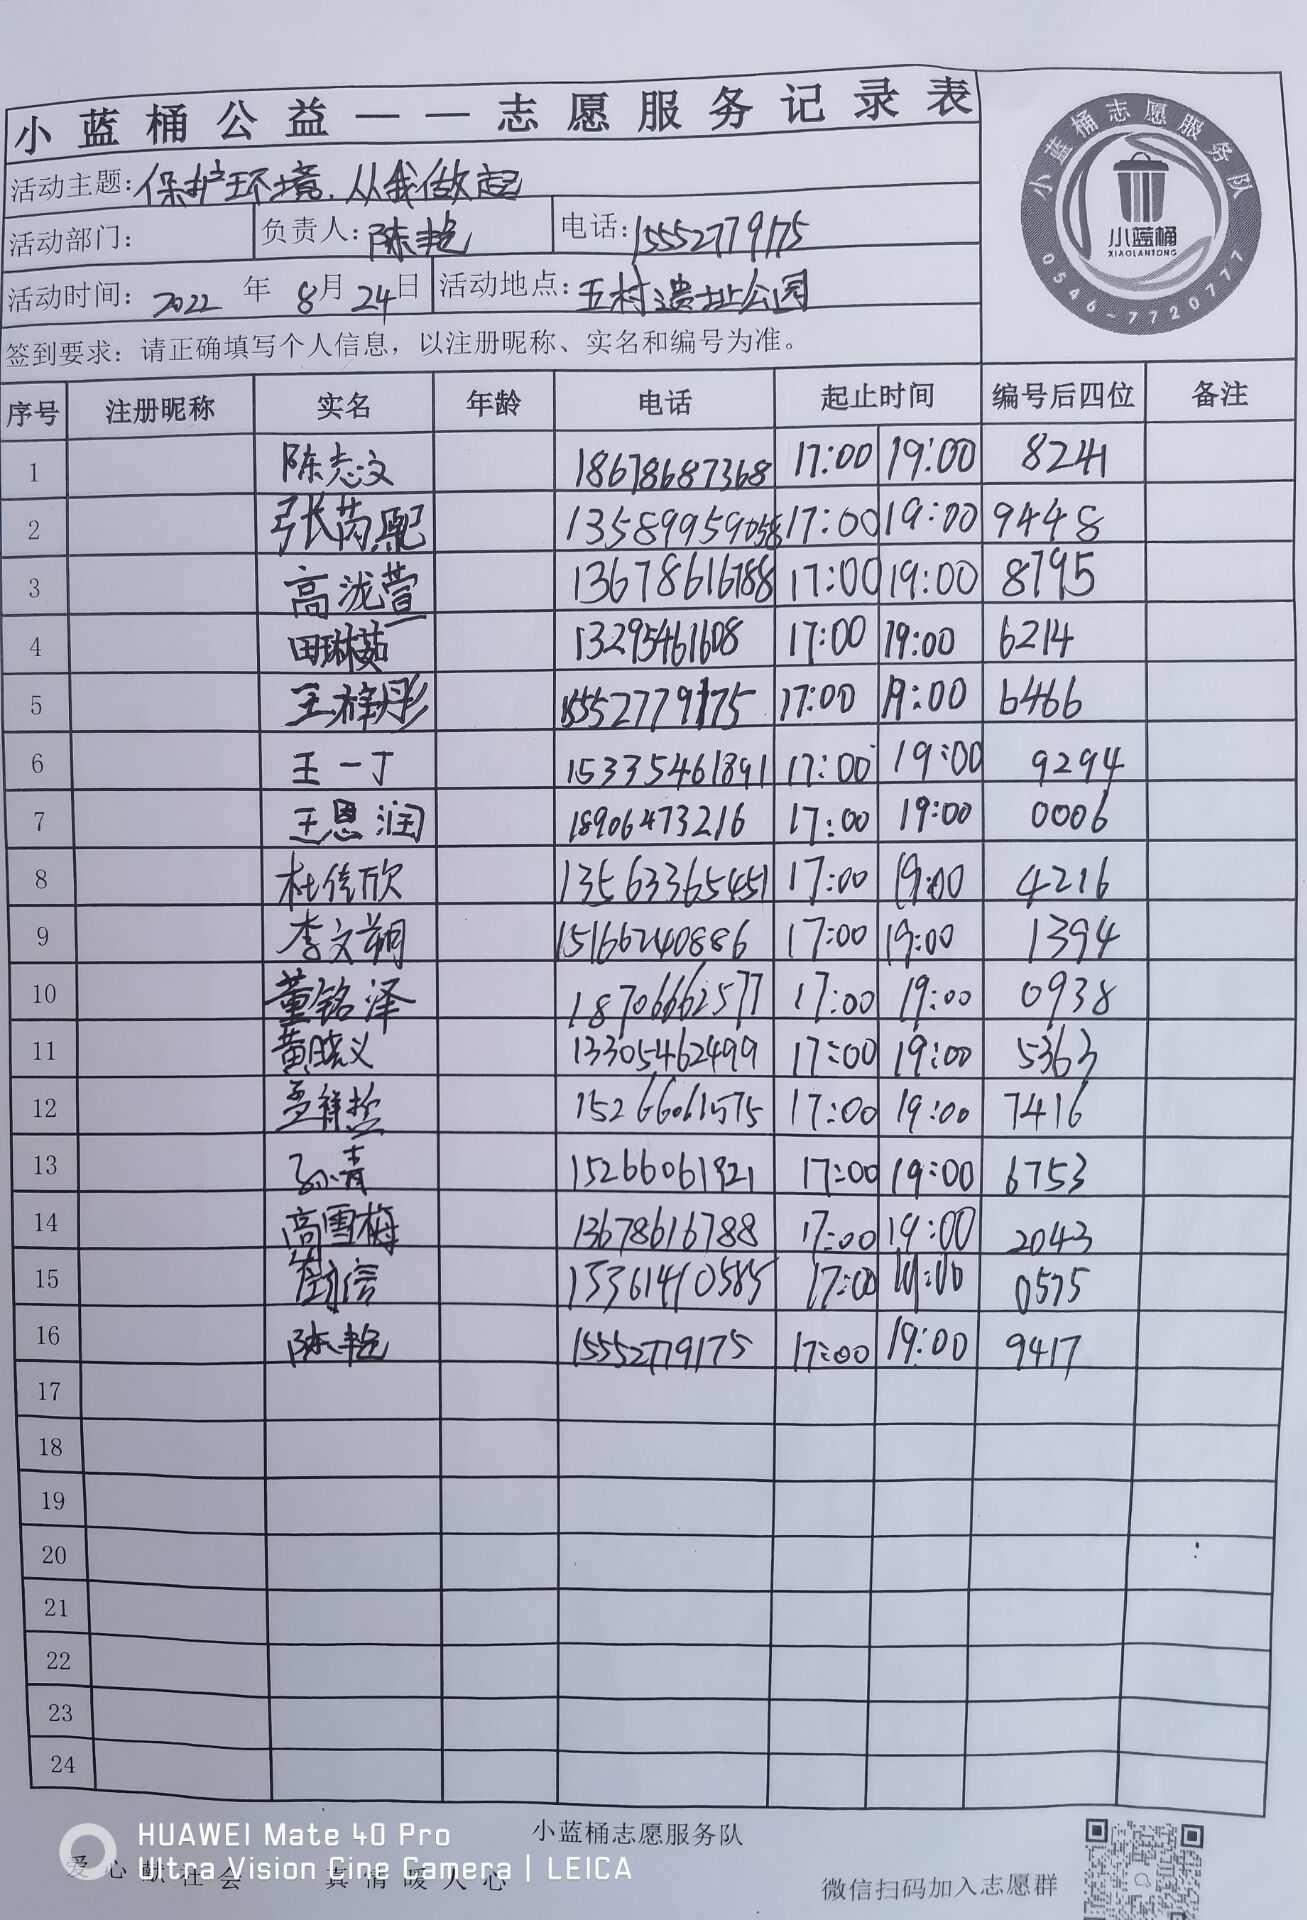 小蓝桶公益——志愿服务记录表
小蓝桶志愿服务队
小蓝桶
XIAOLANTONG
0546-7720777
活动主题：保护环境，从我做起
活动部门： 负责人：陈艳 电话：15552779175
活动时间：2022年8月24日 活动地点：五村遗址公园
签到要求：请正确填写个人信息，以注册昵称、实名和编号为准。
序号 注册昵称 实名 年龄 电话 起止时间 编号后四位 备注
1 陈志文 18678687368 17:00 19:00 8241
2 张芮熙 13589959058 17:00 19:00 9448
3 高泷萱 13678616788 17:00 19:00 8795
4 田琳茹 13295461608 17:00 19:00 6214
5 王梓彤 15552779175 17:00 19:00 6466
6 王一丁 15335461891 17:00 19:00 9294
7 王恩润 18906473216 17:00 19:00 0006
8 杜佳欣 13563365451 17:00 19:00 4216
9 李文朔 15166240886 17:00 19:00 1394
10 董铭泽 18706662577 17:00 19:00 0938
11 黄晓义 13305462499 17:00 19:00 5363
12 孟祥哲 15266061575 17:00 19:00 7416
13 孙青 15266061921 17:00 19:00 6753
14 高雪梅 13678616788 17:00 19:00 2043
15 17:00 19:00 0575
16 陈艳 15552779175 17:00 19:00 9417
17
18
19
20
21
22
23
24
小蓝桶志愿服务队
HUAWEI Mate 40 Pro
Ultra Vision Cine Camera | LEICA
爱心献社会 真情暖人心
微信扫码加入志愿群